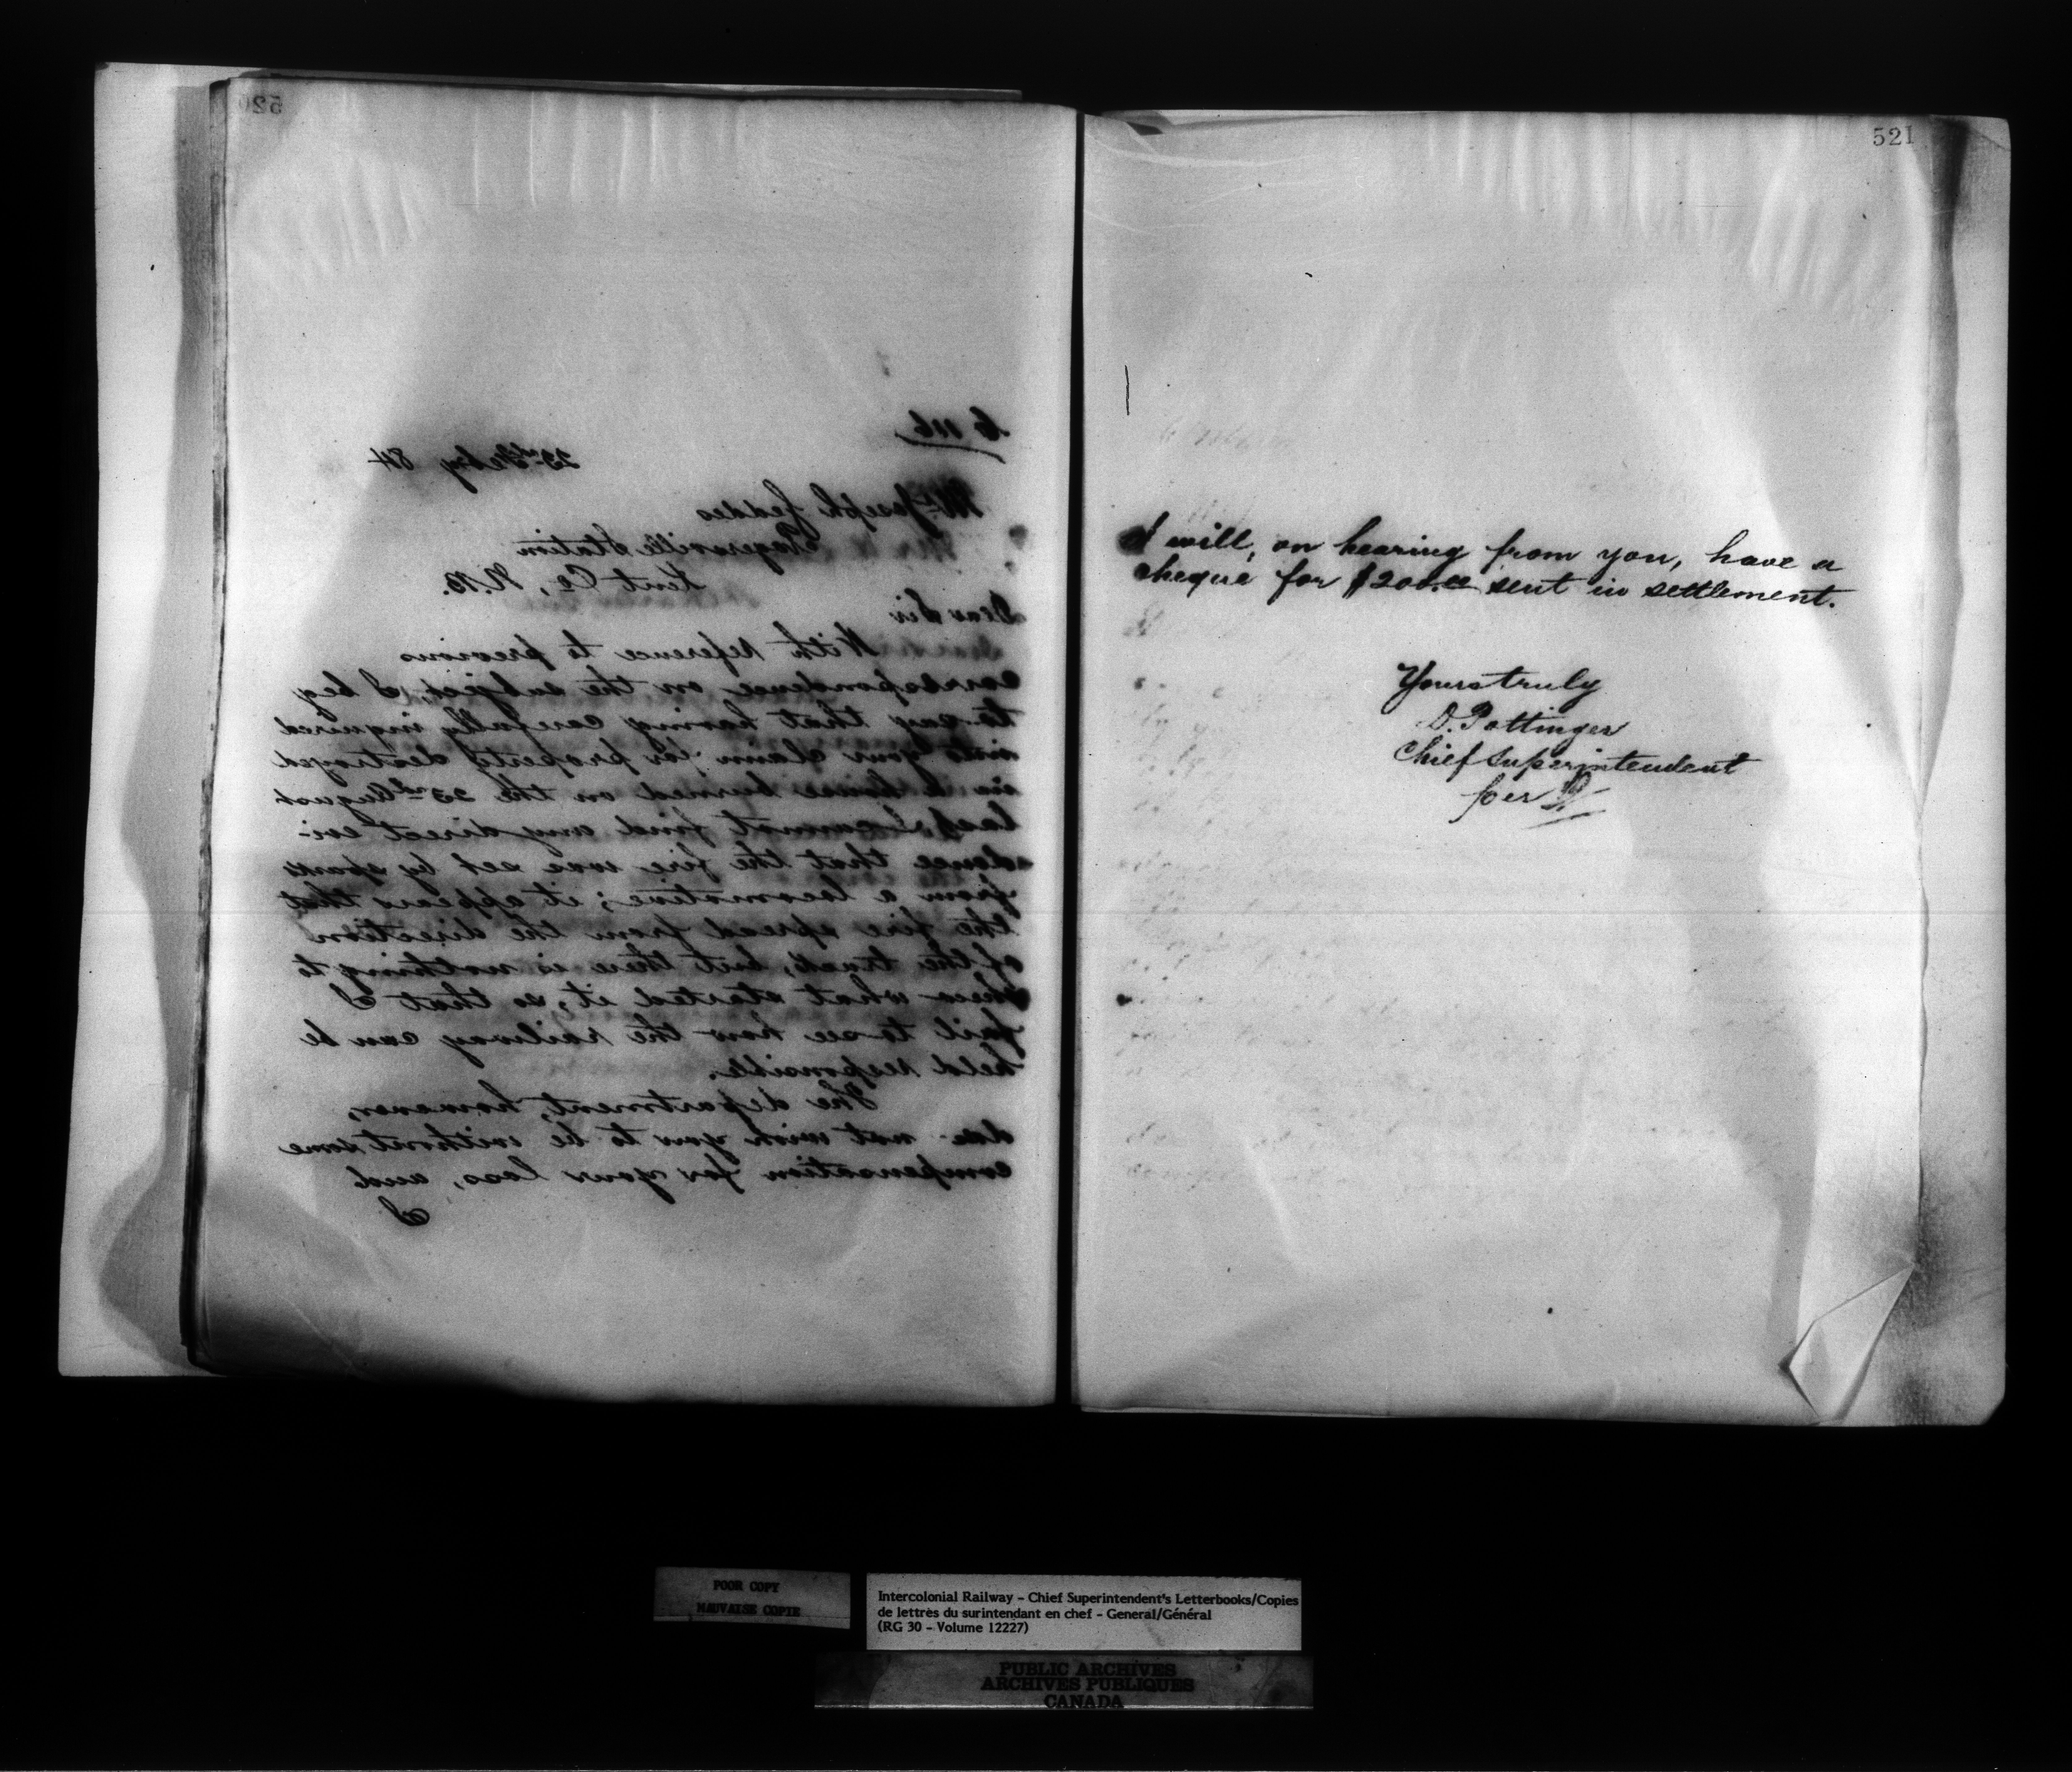 520
C 116
23rd Feby 84
Mr Joseph Geddes
Rogersville Station
Kent Co, N.B.
Dear Sir
With reference to previous
correspondence on the subject, I beg
to say that having carefully inquired
into your claim for property destroyed
in a house burned on the 23rd August
last, I cannot find any direct evi-
dence that the fire was set by sparks
from a locomotive; it appears that
the fire spread from the direction
of the track, but there is nothing to
shew what started it, so that I
fail to see how the railway can be
held responsible.
The department, however,
does not wish you to be without some
compensation for your loss, and
I
521
I will, on hearing from you, have a
cheque for $200.00 sent in settlement.
Yours truly
D. Pottinger
Chief Superintendent
per
POOR COPY
MAUVAISE COPIE
Intercolonial Railway – Chief Superintendent's Letterbooks/Copies
de lettrès du surintendant en chef – General/Général
(RG 30 – Volume 12227)
PUBLIC ARCHIVES
ARCHIVES PUBLIQUES
CANADA